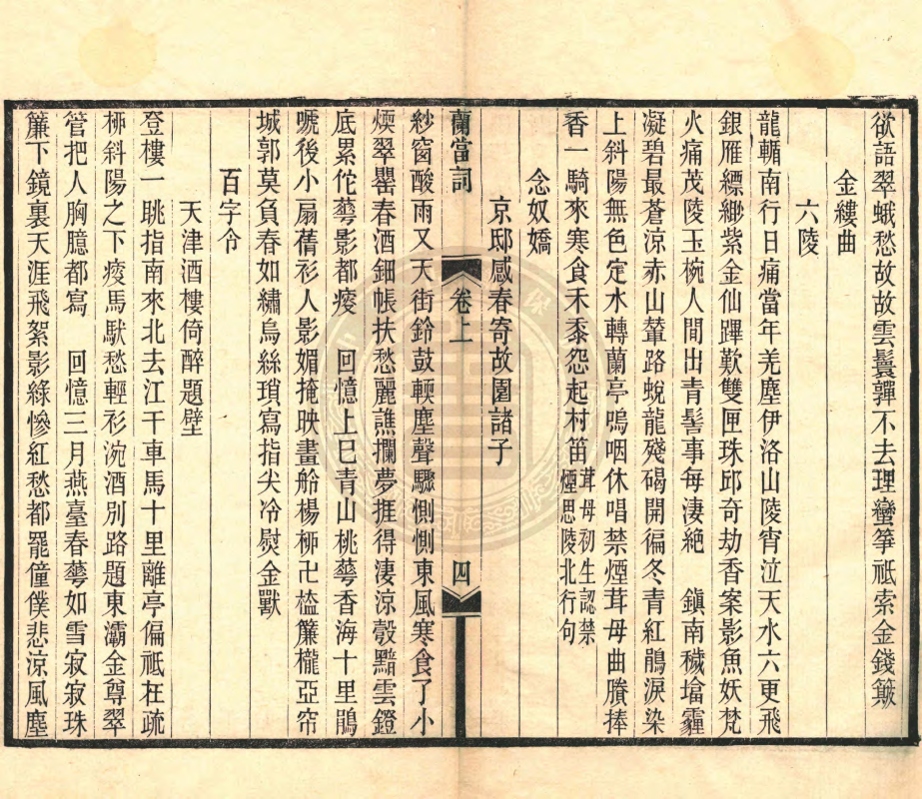 欲語翠蛾愁故故雲鬟嚲不去理蠻箏祇索金錢簸
金縷曲
六陵
龍輴南行日痛當年羌塵伊洛山陵宵泣天水六更飛
銀雁縹緲紫金仙蹕歎雙匣珠邱奇劫香案影魚妖梵
火痛茂陵玉椀人間出青髻事每淒絶 鎭南穢塔霾
凝碧最蒼涼赤山輦路蛻龍殘碣開徧冬青紅鵑淚染
上斜陽無色定水轉蘭亭嗚咽休唱禁煙茸母曲賸捧
香一騎來寒食禾黍怨起村笛茸母初生認禁
煙思陵北行句
念奴嬌
京邸感春寄故園諸子
蘭當詞
卷上
四
紗窗酸雨又天街鈴鼓輭塵聲驟惻惻東風寒食了小
煗翠罌春酒鈿帳扶愁麗譙攔夢捱得淒涼彀黯雲鐙
底累佗蕚影都痠 回憶上巳青山桃蕚香海十里鵑
嗁後小扇蒨衫人影媚掩映畫舲楊桺卍檻簾櫳亞帘
城郭莫負春如繡烏絲瑣寫指尖冷熨金獸
百字令
天津酒樓倚醉題壁
登樓一眺指南來北去江干車馬十里離亭偏祇在疏
桺斜陽之下痠馬馱愁輕衫涴酒別路題東灞金尊翠
管把人胸臆都寫 回憶三月燕臺春蕚如雪寂寂珠
簾下鏡裏天涯飛絮影綠慘紅愁都罷僮僕悲涼風塵